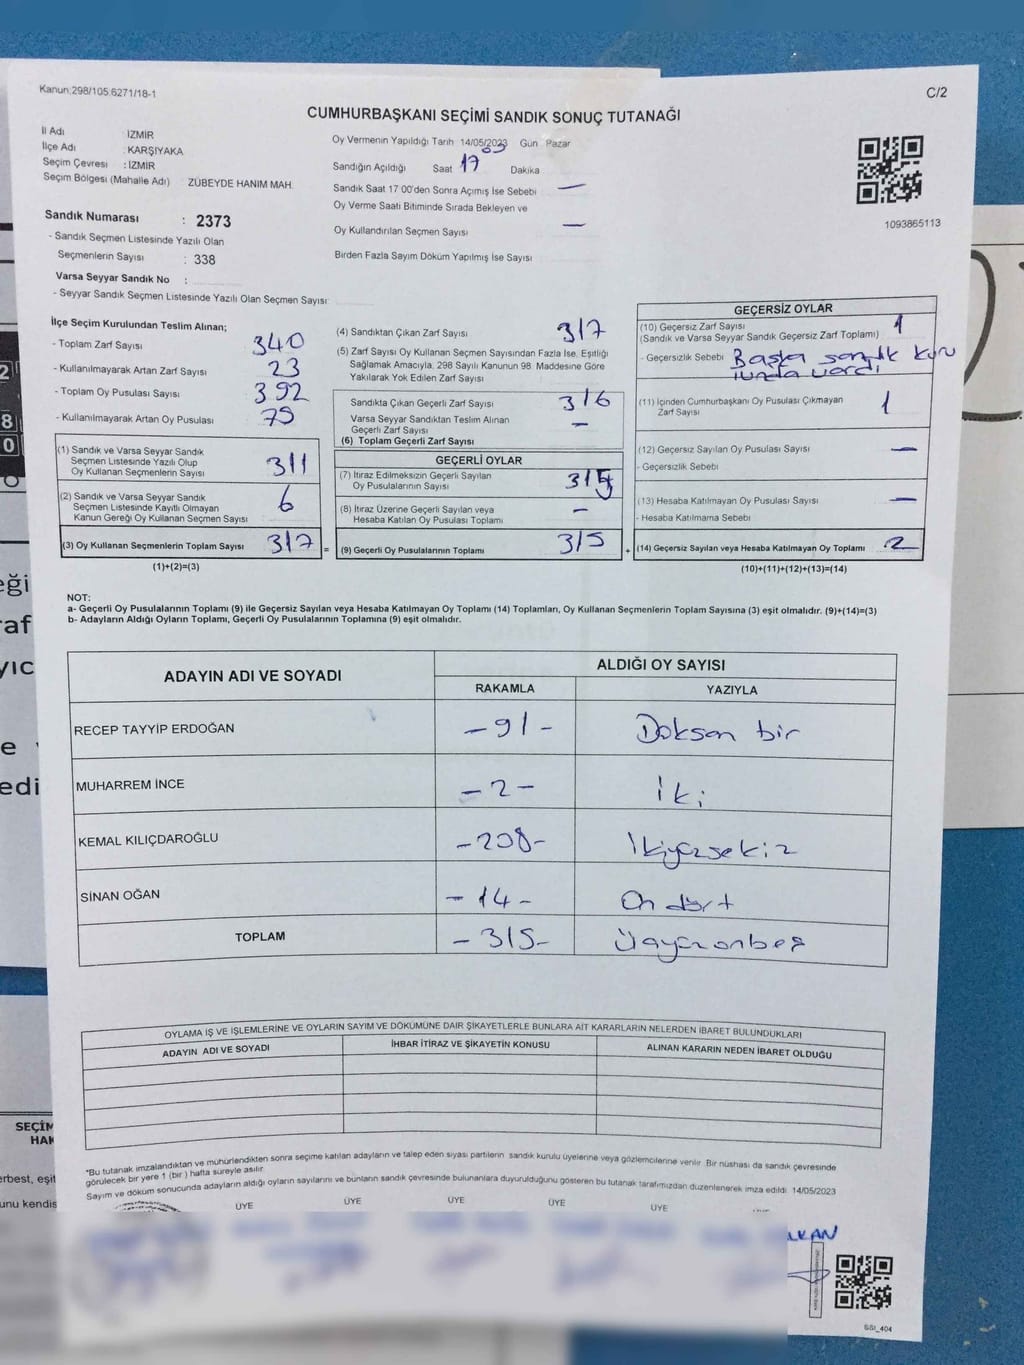 Kanun:298/105.6271/18-1
C/2
CUMHURBAŞKANI SEÇİMİ SANDIK SONUÇ TUTANAĞI
İl Adı : İZMİR
İlçe Adı : KARŞIYAKA
Seçim Çevresi : İZMİR
Seçim Bölgesi (Mahalle Adı) ZÜBEYDE HANIM MAH.
Sandık Numarası : 2373
- Sandık Seçmen Listesinde Yazılı Olan
Seçmenlerin Sayısı : 338
Varsa Seyyar Sandık No :
- Seyyar Sandık Seçmen Listesinde Yazılı Olan Seçmen Sayısı:
Oy Vermenin Yapıldığı Tarih 14/05/2023 Gün Pazar
Sandığın Açıldığı Saat 17 Dakika
Sandık Saat 17 00'den Sonra Açımış İse Sebebi —
Oy Verme Saati Bitiminde Sırada Bekleyen ve
Oy Kullandırılan Seçmen Sayısı —
Birden Fazla Sayım Döküm Yapılmış İse Sayısı
1093865113
İlçe Seçim Kurulundan Teslim Alınan;
- Toplam Zarf Sayısı 340
- Kullanılmayarak Artan Zarf Sayısı 23
- Toplam Oy Pusulası Sayısı 392
- Kullanılmayarak Artan Oy Pusulası 75
(1) Sandık ve Varsa Seyyar Sandık
Seçmen Listesinde Yazılı Olup
Oy Kullanan Seçmenlerin Sayısı 311
(2) Sandık ve Varsa Seyyar Sandık
Seçmen Listesinde Kayıtlı Olmayan
Kanun Gereği Oy Kullanan Seçmen Sayısı 6
(3) Oy Kullanan Seçmenlerin Toplam Sayısı 317
(1)+(2)=(3)
(4) Sandıktan Çıkan Zarf Sayısı 317
(5) Zarf Sayısı Oy Kullanan Seçmen Sayısından Fazla İse, Eşitliği
Sağlamak Amacıyla, 298 Sayılı Kanunun 98. Maddesine Göre
Yakılarak Yok Edilen Zarf Sayısı
Sandıkta Çıkan Geçerli Zarf Sayısı 316
Varsa Seyyar Sandıktan Teslim Alınan
Geçerli Zarf Sayısı —
(6) Toplam Geçerli Zarf Sayısı
GEÇERLİ OYLAR
(7) İtiraz Edilmeksizin Geçerli Sayılan
Oy Pusulalarının Sayısı 315
(8) İtiraz Üzerine Geçerli Sayılan veya
Hesaba Katılan Oy Pusulası Toplamı —
= (9) Geçerli Oy Pusulalarının Toplamı 315
GEÇERSİZ OYLAR
(10) Geçersiz Zarf Sayısı 1
(Sandık ve Varsa Seyyar Sandık Geçersiz Zarf Toplamı)
- Geçersizlik Sebebi Başka sandık kuru
vardı
(11) İçinden Cumhurbaşkanı Oy Pusulası Çıkmayan
Zarf Sayısı 1
(12) Geçersiz Sayılan Oy Pusulası Sayısı —
- Geçersizlik Sebebi
(13) Hesaba Katılmayan Oy Pusulası Sayısı —
- Hesaba Katılmama Sebebi
+ (14) Geçersiz Sayılan veya Hesaba Katılmayan Oy Toplamı 2
(10)+(11)+(12)+(13)=(14)
NOT:
a- Geçerli Oy Pusulalarının Toplamı (9) ile Geçersiz Sayılan veya Hesaba Katılmayan Oy Toplamı (14) Toplamları, Oy Kullanan Seçmenlerin Toplam Sayısına (3) eşit olmalıdır. (9)+(14)=(3)
b- Adayların Aldığı Oyların Toplamı, Geçerli Oy Pusulalarının Toplamına (9) eşit olmalıdır.
ADAYIN ADI VE SOYADI ALDIĞI OY SAYISI
RAKAMLA YAZIYLA
RECEP TAYYİP ERDOĞAN -91- Doksan bir
MUHARREM İNCE -2- İki
KEMAL KILIÇDAROĞLU -208- İkiyüzsekiz
SİNAN OĞAN -14- On dört
TOPLAM -315- Üçyüzonbeş
OYLAMA İŞ VE İŞLEMLERİNE VE OYLARIN SAYIM VE DÖKÜMÜNE DAİR ŞİKAYETLERLE BUNLARA AİT KARARLARIN NELERDEN İBARET BULUNDUKLARI
ADAYIN ADI VE SOYADI İHBAR İTİRAZ VE ŞİKAYETİN KONUSU ALINAN KARARIN NEDEN İBARET OLDUĞU
*Bu tutanak imzalandıktan ve mühürlendikten sonra seçime katılan adayların ve talep eden siyasi partilerin sandık kurulu üyelerine veya gözlemcilerine verilir. Bir nüshası da sandık çevresinde
görülecek bir yere 1 (bir) hafta süreyle asılır.
Sayım ve döküm sonucunda adayların aldığı oyların sayılarını ve bunların sandık çevresinde bulunanlara duyurulduğunu gösteren bu tutanak tarafımızdan düzenlenerek imza edildi. 14/05/2023
ÜYE ÜYE ÜYE ÜYE ÜYE
LKAN
SSI_404
SEÇİM